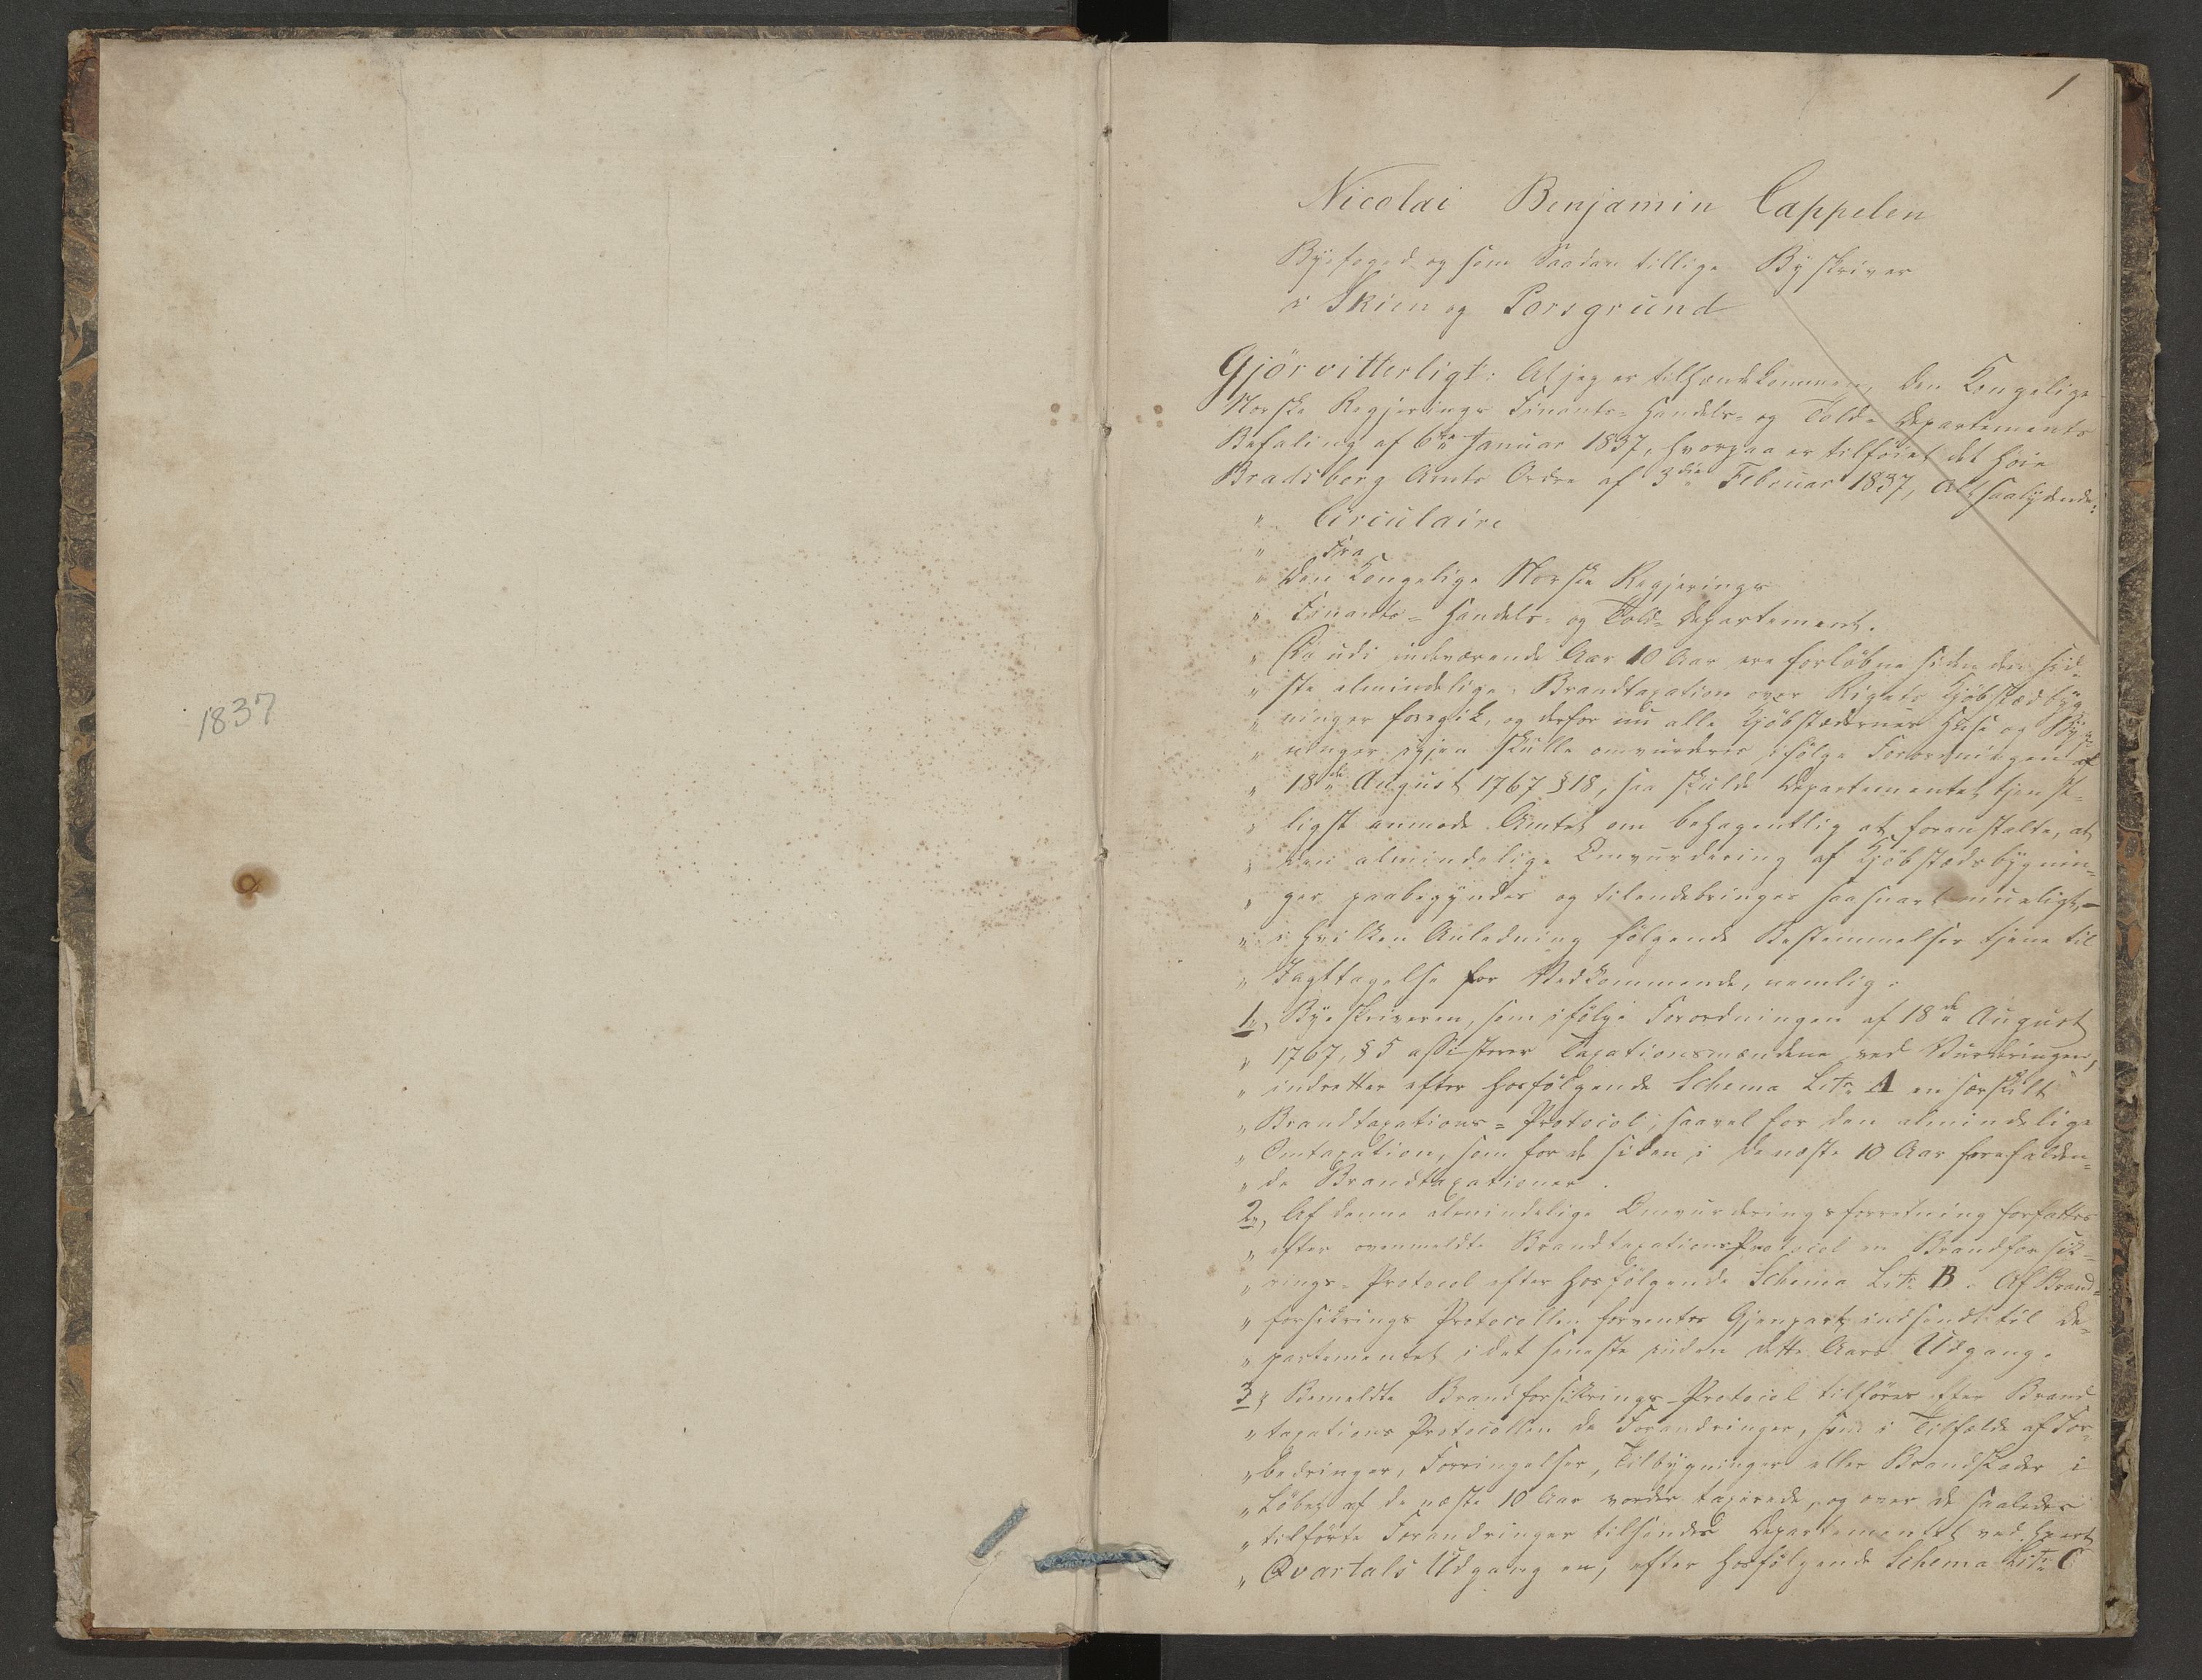 1837
1
Nicolai Benjamin Cappelen
Byefoged og som Saadan tillige Byskriver
i Skien og Porsgrund
Gjör vitterligt: At jeg er tilhændekommen, den Kongelige
Norske Regjerings Finants- Handels- og Told- Departements
Befaling af 6te Januar 1837, hvorpaa er tilföiet det Höie
Bradsberg Amts Ordre af 3die Februar 1837, Alt saalydende:
" Circulaire
" Fra
" Den Kongelige Norske Regjerings
" Finants- Handels- og Told- Departement.
" Da udi indeværende Aar 10 Aar ere forløbne siden den sid-
" ste almindelige Brandtaxation over Rigets Kjöbstædbyg-
" ninger foregik, og derfor nu alle Kjöbstædernes Huse og Byg-
" ninger igjen skulle omvurderes ifölge Forordningen af
" 18de August 1767 § 18, saa skulde Departementet tjenst-
" ligst anmode Amtet om behagentlig at foranstalte, at
" den almindelige Omvurdering af Kjöbstædsbygnin-
" ger paabegyndes og tilendebringes saasnart mueligt, -
" i hvilken Anledning fölgende Bestemmelser tjene til
" Iagttagelse for Vedkommende, nemlig:
1, Byeskriveren, som ifölge Forordningen af 18de August
" 1767, § 5 assisterer Taxationsmændene ved Vurderingen,
" indretter efter hosfölgende Schema Litr. A en særskilt
" Brandtaxations-Protocol, saavel for den almindelige
" Omtaxation, som for de siden i de næste 10 Aar forefalden-
" de Brandtaxationer.
2, Af denne almindelige Omvurderingsforretning forfattes
" efter ovenmeldte Brandtaxations Protocol en Brandforsik-
" rings-Protocol efter hosfölgende Schema Litr. B. Af Brand-
" forsikrings Protocollen forventes Gjenpart indsendt til De-
" partementet i det seneste inden dette Aars Udgang.
3, Bemeldte Brandforsikrings-Protocol tilföres efter Brand-
" taxations Protocollen de Forandringer, som i Tilfælde af For-
" bedringer, Forringelser, Tilbygninger eller Brandskader i
" Löbet af de næste 10 Aar vorder taxerede, og over de saaledes
" tilförte Forandringer tilsendes Departementet ved hvert
" Qvartals Udgang en, efter hosfölgende Schema Litr. C